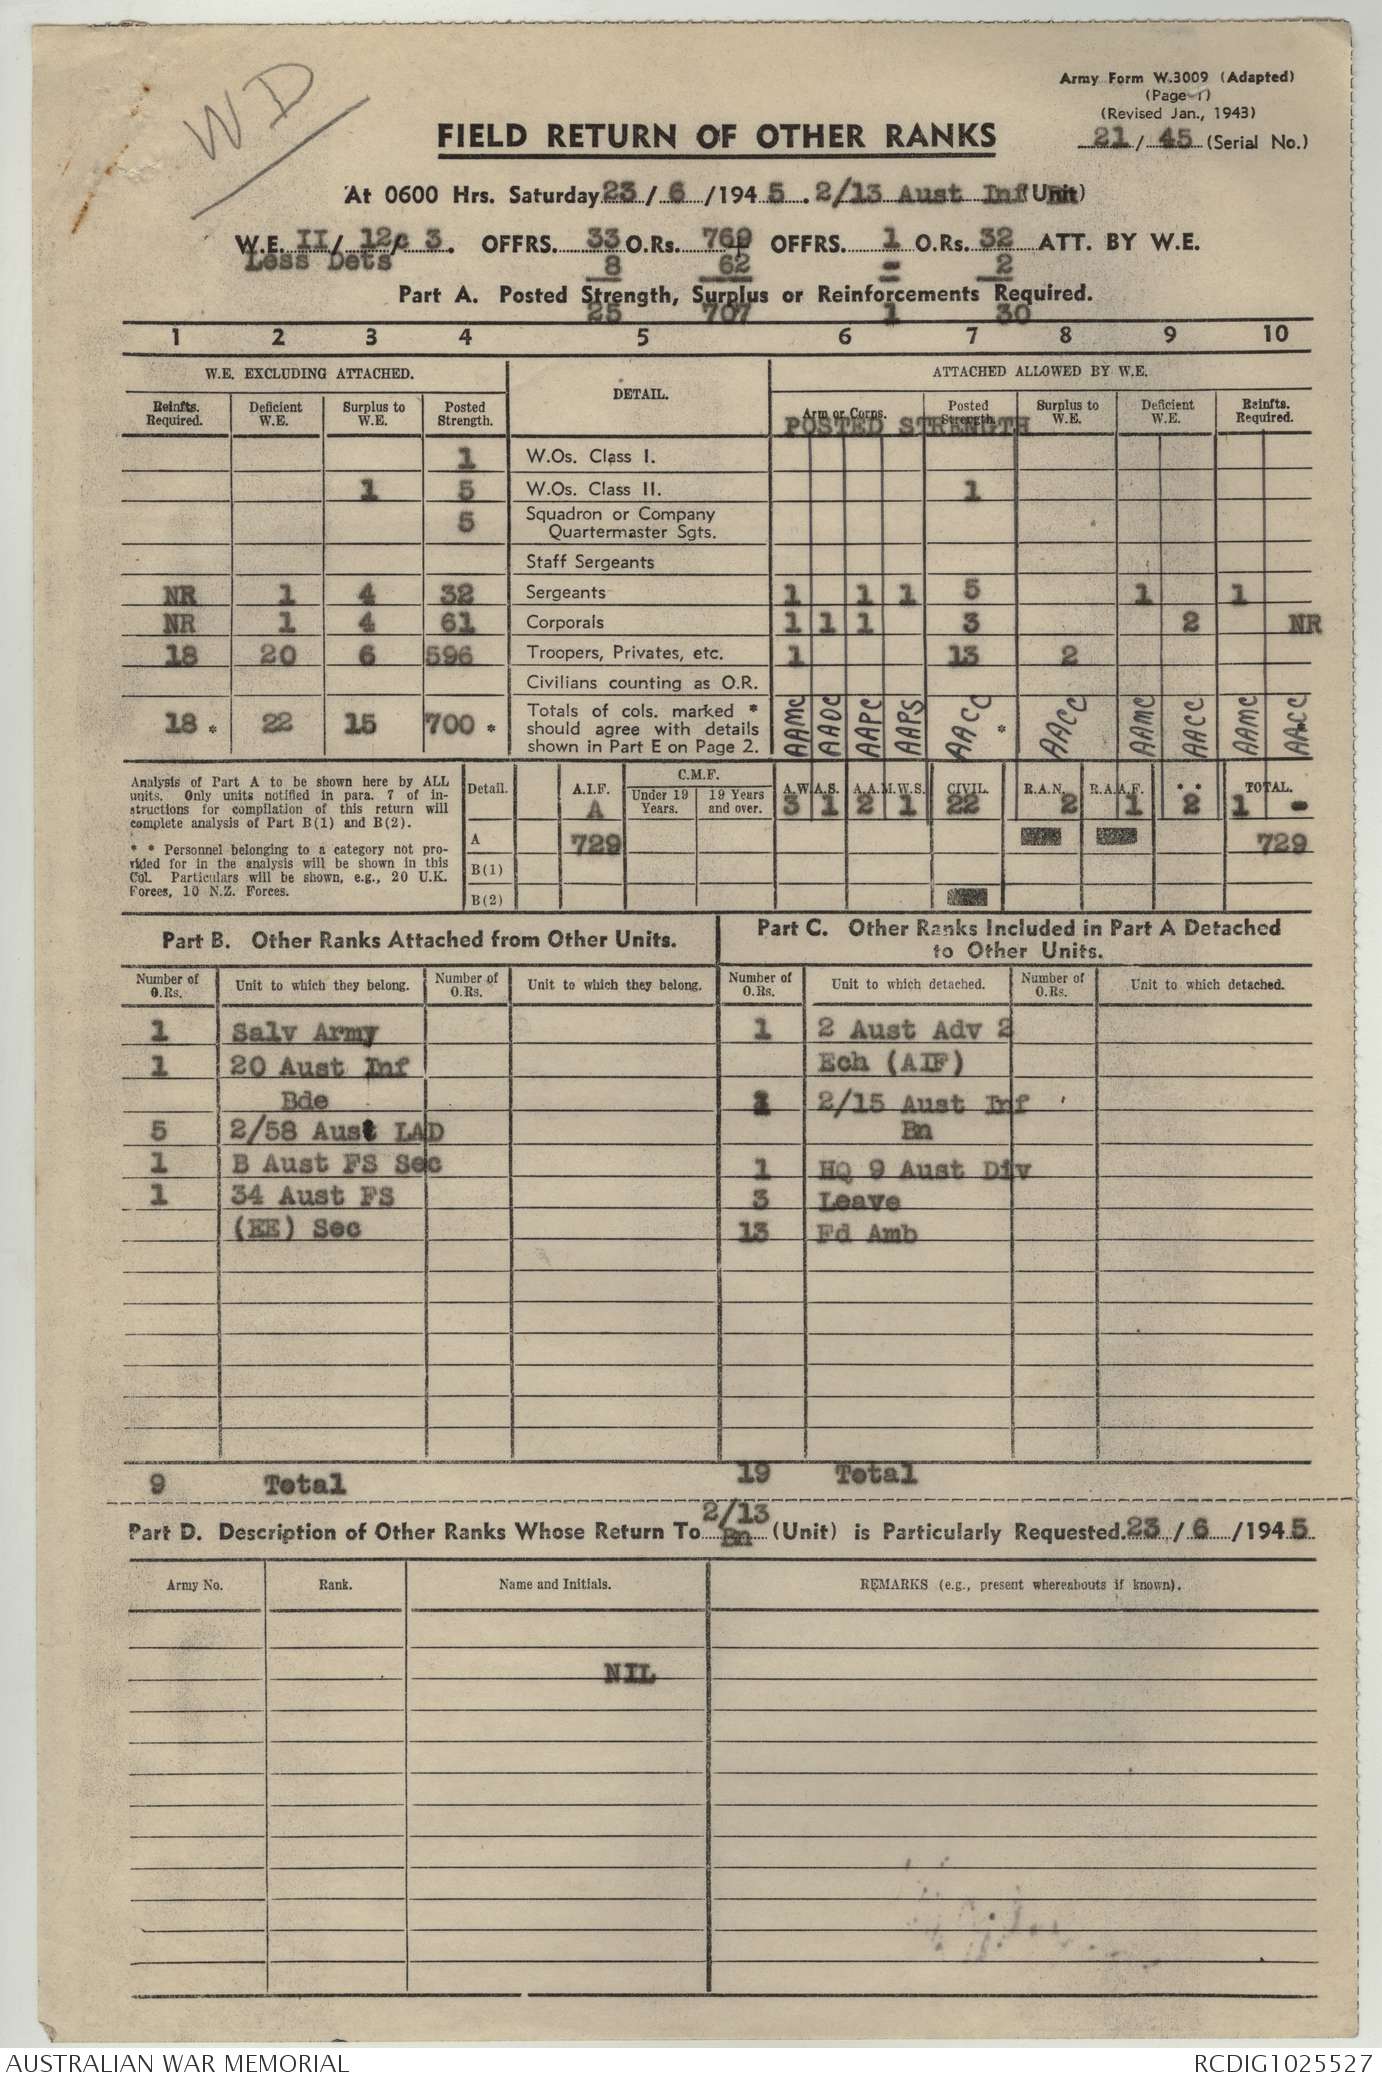 WD
Army Form W.3009 (Adapted)
(Page 1)
(Revised Jan., 1943)
21 / 45 (Serial No.)
FIELD RETURN OF OTHER RANKS
At 0600 Hrs. Saturday 23 / 6 /194 5 . 2/13 Aust Inf (Unit)
W.E. II / 12c 3 . OFFRS. 33 O.Rs. 769 OFFRS. 1 O.Rs. 32 ATT. BY W.E.
Less Dets 8 62 - 2
Part A. Posted Strength, Surplus or Reinforcements Required.
25 707 1 30
1 2 3 4 5 6 7 8 9 10
W.E. EXCLUDING ATTACHED. DETAIL. ATTACHED ALLOWED BY W.E.
Reinfts. Required. Deficient W.E. Surplus to W.E. Posted Strength. Arm or Corps. Posted Strength. Surplus to W.E. Deficient W.E. Reinfts. Required.
POSTED STRENGTH
1 W.Os. Class I.
1 5 W.Os. Class II. 1
5 Squadron or Company
Quartermaster Sgts.
Staff Sergeants
NR 1 4 32 Sergeants 1 1 1 5 1 1
NR 1 4 61 Corporals 1 1 1 3 2 NR
18 20 6 596 Troopers, Privates, etc. 1 13 2
Civilians counting as O.R.
18 * 22 15 700 * Totals of cols. marked *
should agree with details
shown in Part E on Page 2.
AAMC AAOC AAPC AAPS AACC * AACC AAMC AACC AAMC AACC
Analysis of Part A to be shown here by ALL
units. Only units notified in para. 7 of in-
structions for compilation of this return will
complete analysis of Part B(1) and B(2).
* * Personnel belonging to a category not pro-
vided for in the analysis will be shown in this
Col. Particulars will be shown, e.g., 20 U.K.
Forces, 10 N.Z. Forces.
Detail. A.I.F. C.M.F. A.W.A.S. A.A.M.W.S. CIVIL. R.A.N. R.A.A.F. * * TOTAL.
A Under 19 Years. 19 Years and over. 3 1 2 1 22 2 1 2 1 -
A 729 729
B(1)
B(2)
Part B. Other Ranks Attached from Other Units.
Number of O.Rs. Unit to which they belong. Number of O.Rs. Unit to which they belong.
1 Salv Army
1 20 Aust Inf
Bde
5 2/58 Aust LAD
1 B Aust FS Sec
1 34 Aust FS
(EE) Sec
9 Total
Part C. Other Ranks Included in Part A Detached
to Other Units.
Number of O.Rs. Unit to which detached. Number of O.Rs. Unit to which detached.
1 2 Aust Adv 2
Ech (AIF)
1 2/15 Aust Inf
Bn
1 HQ 9 Aust Div
3 Leave
13 Fd Amb
19 Total
2/13
Part D. Description of Other Ranks Whose Return To Bn (Unit) is Particularly Requested. 23 / 6 /194 5
Army No. Rank. Name and Initials. REMARKS (e.g., present whereabouts if known).
NIL
AUSTRALIAN WAR MEMORIAL RCDIG1025527